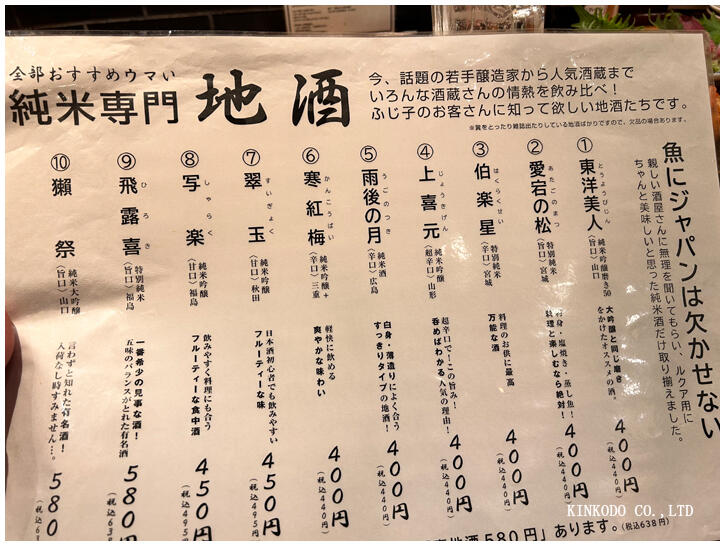 全部おすすめウマい
純米専門 地酒
今、話題の若手醸造家から人気酒蔵まで
いろんな酒蔵さんの情熱を飲み比べ!
ふじ子のお客さんに知って欲しい地酒たちです。
※賞をとったり雑誌出たりしている地酒ばかりですので、欠品の場合あります。
魚にジャパンは欠かせない
親しい酒屋さんに無理を聞いてもらい、ルクア用に
ちゃんと美味しいと思った純米酒だけ取り揃えました。
① 東洋美人 とうようびじん
純米吟醸磨き50
(旨口) 山口
大吟醸と同じ磨き
をかけたオススメの酒。
400円
(税込440円)
② 愛宕の松 あたごのまつ
特別純米
(旨口) 宮城
刺身・塩焼き・蒸し魚!
料理と楽しむなら絶対!
400円
(税込440円)
③ 伯楽星 はくらくせい
特別純米
(辛口) 宮城
料理のお供に最高
万能な酒
400円
(税込440円)
④ 上喜元 じょうきげん
純米吟醸
(超辛口) 山形
超辛口で!この旨み!
呑めばわかる人気の理由!
400円
(税込440円)
⑤ 雨後の月 うごのつき
純米酒
(辛口) 広島
白身・薄造りによく合う
すっきりタイプの地酒!
400円
(税込440円)
⑥ 寒紅梅 かんこうばい
純米吟醸+
(辛口) 三重
軽快に飲める
爽やかな味わい
400円
(税込440円)
⑦ 翠玉 すいぎょく
純米吟醸
(甘口) 秋田
日本酒初心者でも飲みやすい
フルーティーな味
450円
(税込495円)
⑧ 写楽 しゃらく
純米吟醸
(甘口) 福島
飲みやすく料理にも合う
フルーティーな食中酒
450円
(税込495円)
⑨ 飛露喜 ひろき
特別純米
(旨口) 福島
一番希少の見事な酒!
五味のバランスがとれた有名酒
580円
(税込638
⑩ 獺祭
純米大吟醸
(旨口) 山口
言わずと知れた有名酒!
入荷なし時すみません…。
580
(税込63
地酒580円」あります。(税込638円)
KINKODO CO.,LTD